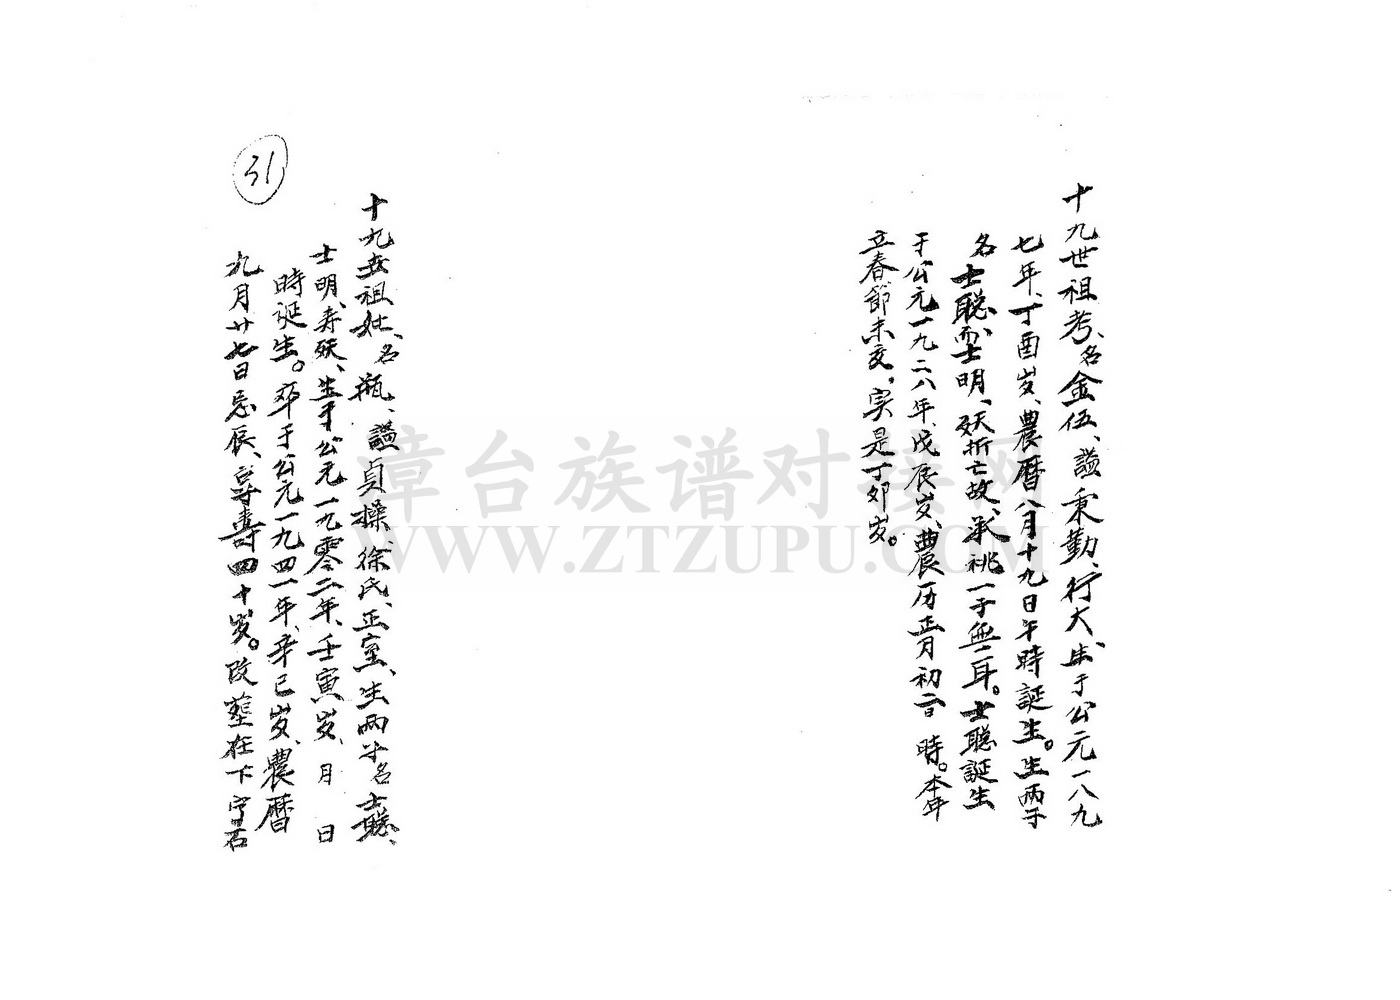 十九世祖考、名金伍、謚秉勤、行大、生于公元一八九
七年、丁酉岁、農曆八月十九日午時誕生。生兩子
名士聪、而士明、殀折亡故、承祧一子無二耳。士聪誕生
于公元一九二八年、戊辰岁、農历正月初二日 時。本年
立春節未交，实是丁卯岁。
十九世祖妣、名瓶、謚貞操、徐氏、正室、生兩子名士聪、
士明、寿殀、生于公元一九零二年、壬寅岁、 月 日
時诞生。卒于公元一九四一年、辛巳岁、農曆
九月廿七日忌辰、享寿四十岁。改塟在下宁石
31
漳台族谱对接网
WWW.ZTZUPU.COM